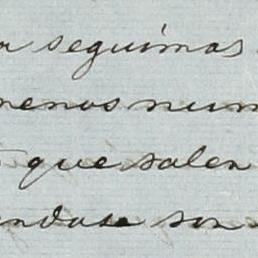 seguimos
menos num
que salen
ndose son